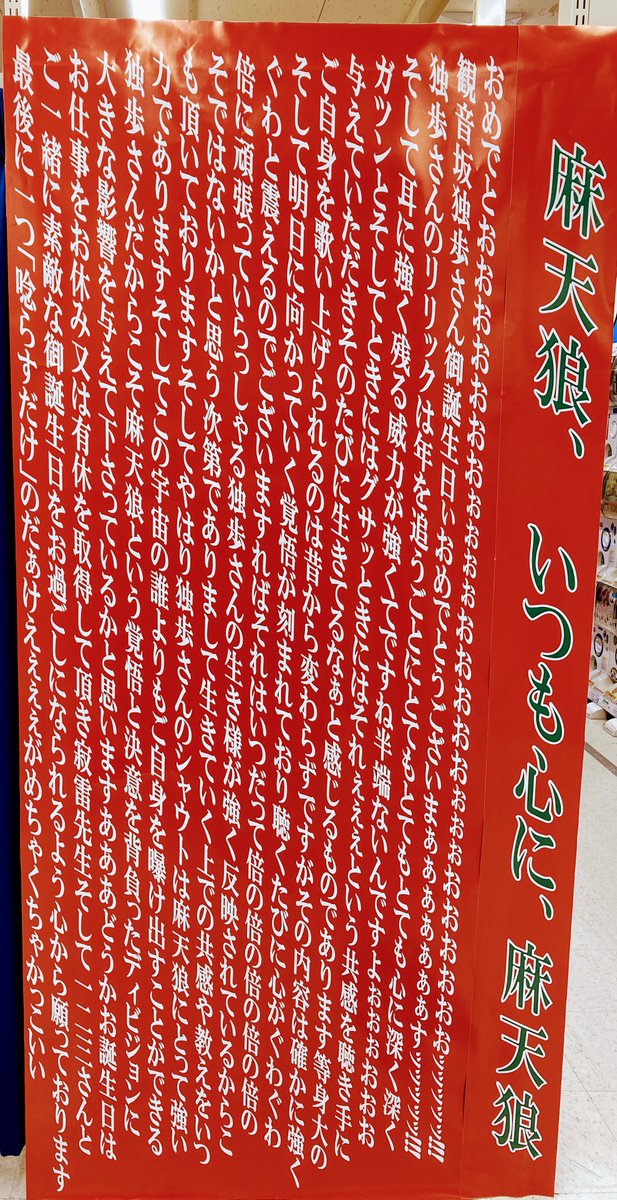 麻天狼、いつも心に、麻天狼
おめでとおおおおおおおおおおおおおおおおおおおおおおおおおおおおおおおおおおおおおぉッッッッッ!!!
観音坂独歩さん御誕生日ぃおめでとうございまぁぁぁぁぁぁぁぁすッッッッッ!!!
独歩さんのリリックは年を追うごとにとてもとてもとてもとても心に深く深く
そして耳に強く残る威力が強くてですね半端ないんですよぉぉぉぉぉぉぉ
ガツンとそしてときにはグサッときにはそれぇぇぇという共感を聴き手に
与えていただきそのたびに生きてるなぁと感じるものであります等身大の
ご自身を歌い上げられるのは昔から変わらずですがその内容は確かに強く
そして明日に向かっていく覚悟が刻まれており聴くたびに心がぐわぐわ
ぐわと震えるのでございますればそれはいつだって倍の倍の倍の倍の倍の
倍に頑張っていらっしゃる独歩さんの生き様が強く反映されているからこ
そではないかと思う次第でありまして生きていく上での共感や教えをいつ
も頂いておりますそしてやはり独歩さんのシャウトは麻天狼にとって強い
力でありますそしてこの宇宙の誰よりもご自身を曝け出すことができる
独歩さんだからこそ麻天狼という覚悟と決意を背負ったディビジョンに
大きな影響を与えて下さっているかと思いますあぁあどうかお誕生日は
お仕事をお休み又は有休を取得して頂き寂雷先生そして一二三さんと
ご一緒に素敵な御誕生日をお過ごしになられるよう心から願っております
最後に一つ「唸らすだけ」のだぁけえぇぇぇがめちゃくちゃかっこいい